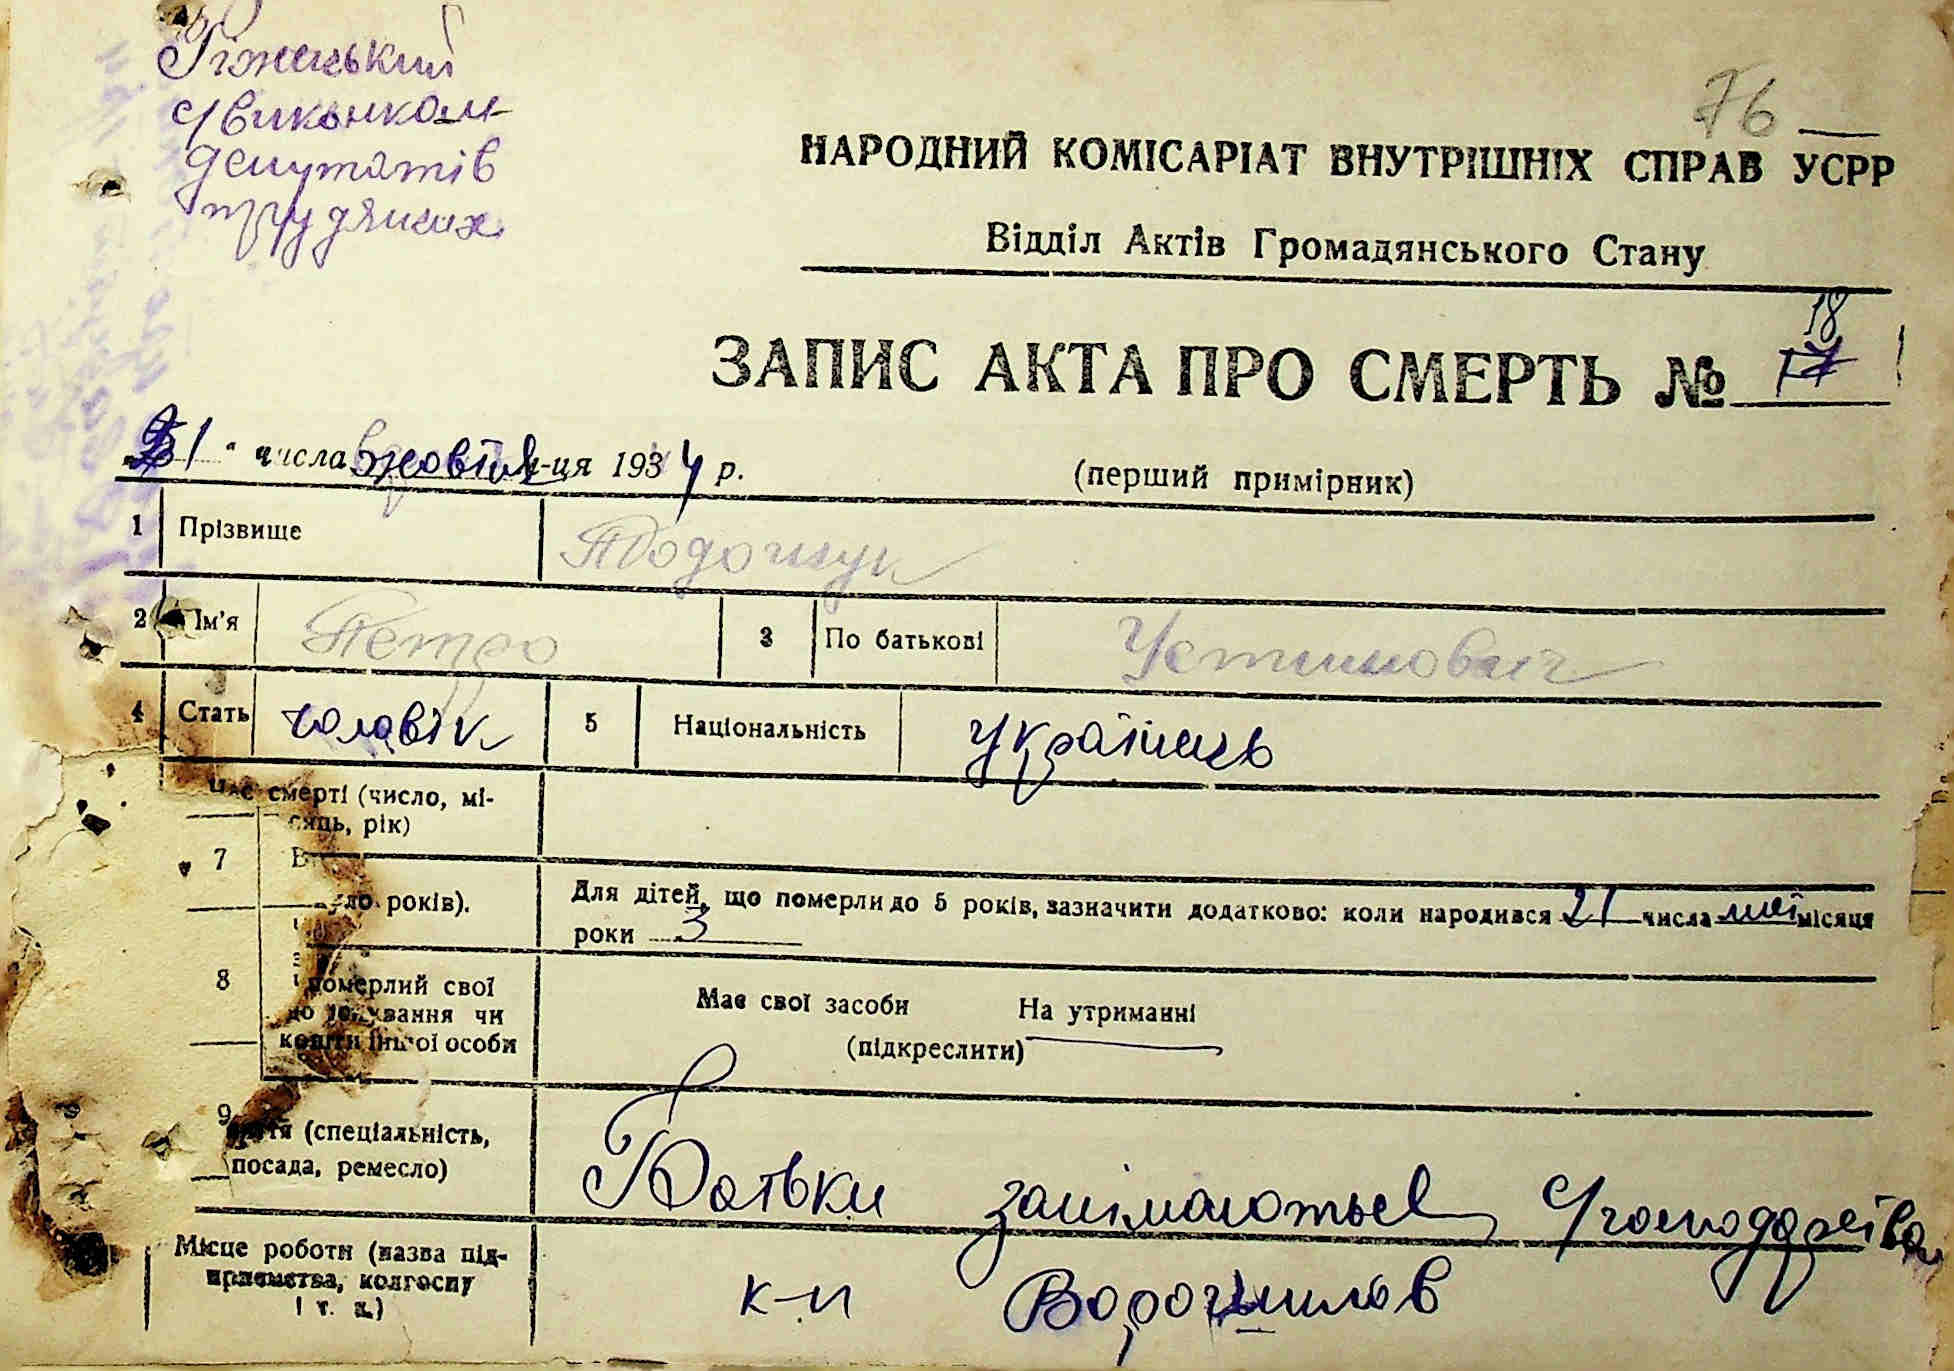 76
депутатів
трудящих
НАРОДНИЙ КОМІСАРІАТ ВНУТРІШНІХ СПРАВ УСРР
Відділ Актів Громадянського Стану
18
ЗАПИС АКТА ПРО СМЕРТЬ № 17
числа жовтня м-ця 1934 р.
(перший примірник)
1 Прізвище
2 Ім'я Петро 3 По батькові Устинович
4 Стать чоловік 5 Національність українець
Час смерті (число, мі-
сяць, рік)
7
було років).
Для дітей, що померли до 5 років, зазначити додатково: коли народився 21 числа мая місяця
роки 3
8
померлий свої
до існування чи
кошти іншої особи
Має свої засоби На утриманні
(підкреслити)
9
(спеціальність,
посада, ремесло)
Батьки занімаються
Місце роботи (назва під-
приємства, колгоспу
і т. д.)
к-п Ворошилов